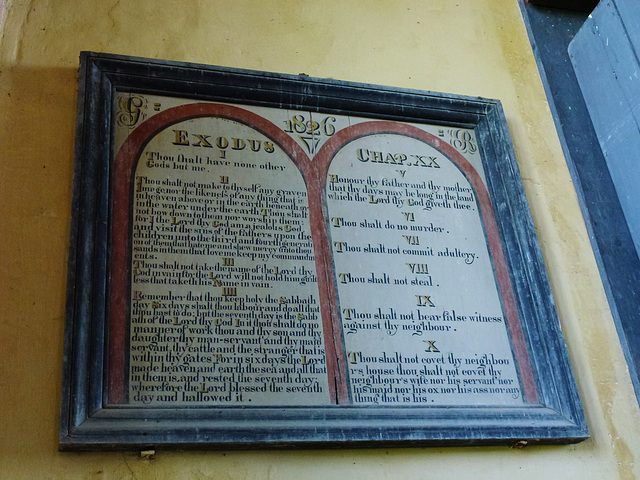 G = 1826 = R
EXODUS
I
Thou shalt have none other
Gods but me.
II
Thou shalt not make to thyself any graven
Image nor the likeness of any thing that is
in heaven above or in the earth beneath or
in the water under the earth Thou shalt
not bow down to them nor worship them:
for I the Lord thy God am a jealous God,
and visit the sins of the fathers upon the
children unto the third and fourth generati
on of them that hate me and shew mercy unto thou
sands in them that love me keep my commandm
ents.
III
Thou shalt not take the name of the Lord thy
God in vain for the Lord will not hold him guilt
less that taketh his Name in vain.
IIII
Remember that thou keep holy the Sabbath
day Six days shalt thou labour and do all that
thou hast to do; but the seventh day is the Sabb
ath of the Lord thy God In it thou shalt do no
manner of work thou and thy son and thy
daughter thy man-servant and thy maid
servant, thy cattle and the stranger that is
within thy gates For in six days the Lord
made heaven and earth the sea and all that
in them is, and rested the seventh day;
wherefore the Lord blessed the seventh
day and hallowed it .
CHAP. XX
V
Honour thy father and thy mother
that thy days may be long in the land
which the Lord thy God giveth thee.
VI
Thou shalt do no murder.
VII
Thou shalt not commit adultery.
VIII
Thou shalt not steal .
IX
Thou shalt not bear false witness
against thy neighbour .
X
Thou shalt not covet thy neighbou
r's house thou shalt not covet thy
neighbour's wife nor his servant nor
his maid nor his ox nor his ass nor any
thing that is his .